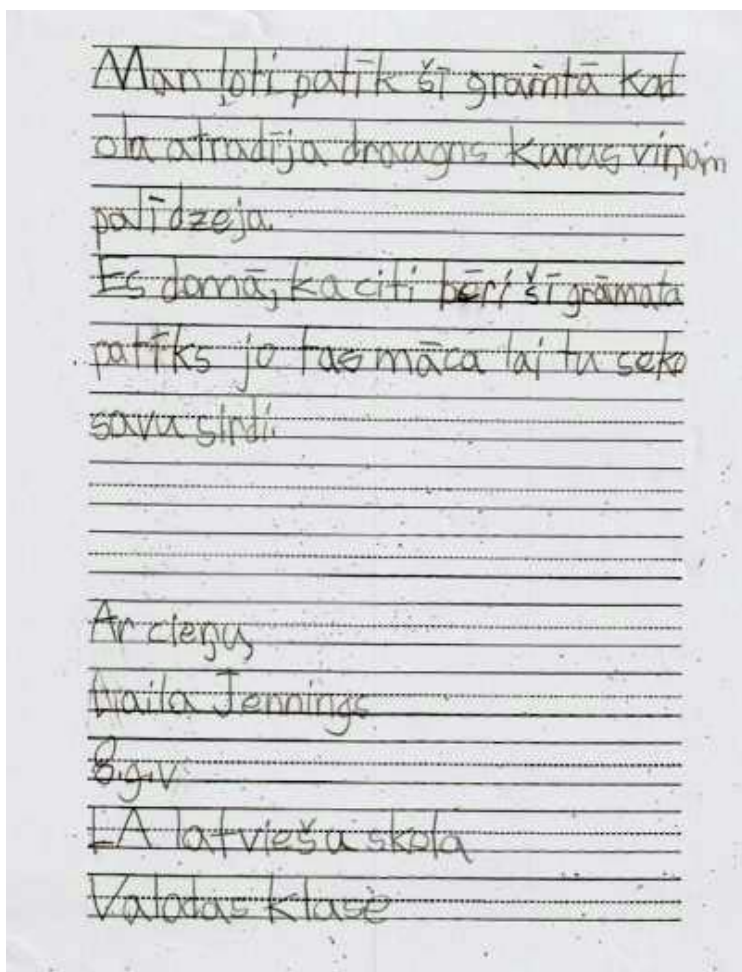 Man ļoti patīk šī gramtā kad
ola atradīja draugns kurus viņam
palīdzeja.
Es domā, ka citi bēri šī grāmata
patīks jo tas māca lai tu seko
savu sirdi.
Ar cieņu,
Naila Jennings
8.g.v.
LA latviešu skola
Valodas klase